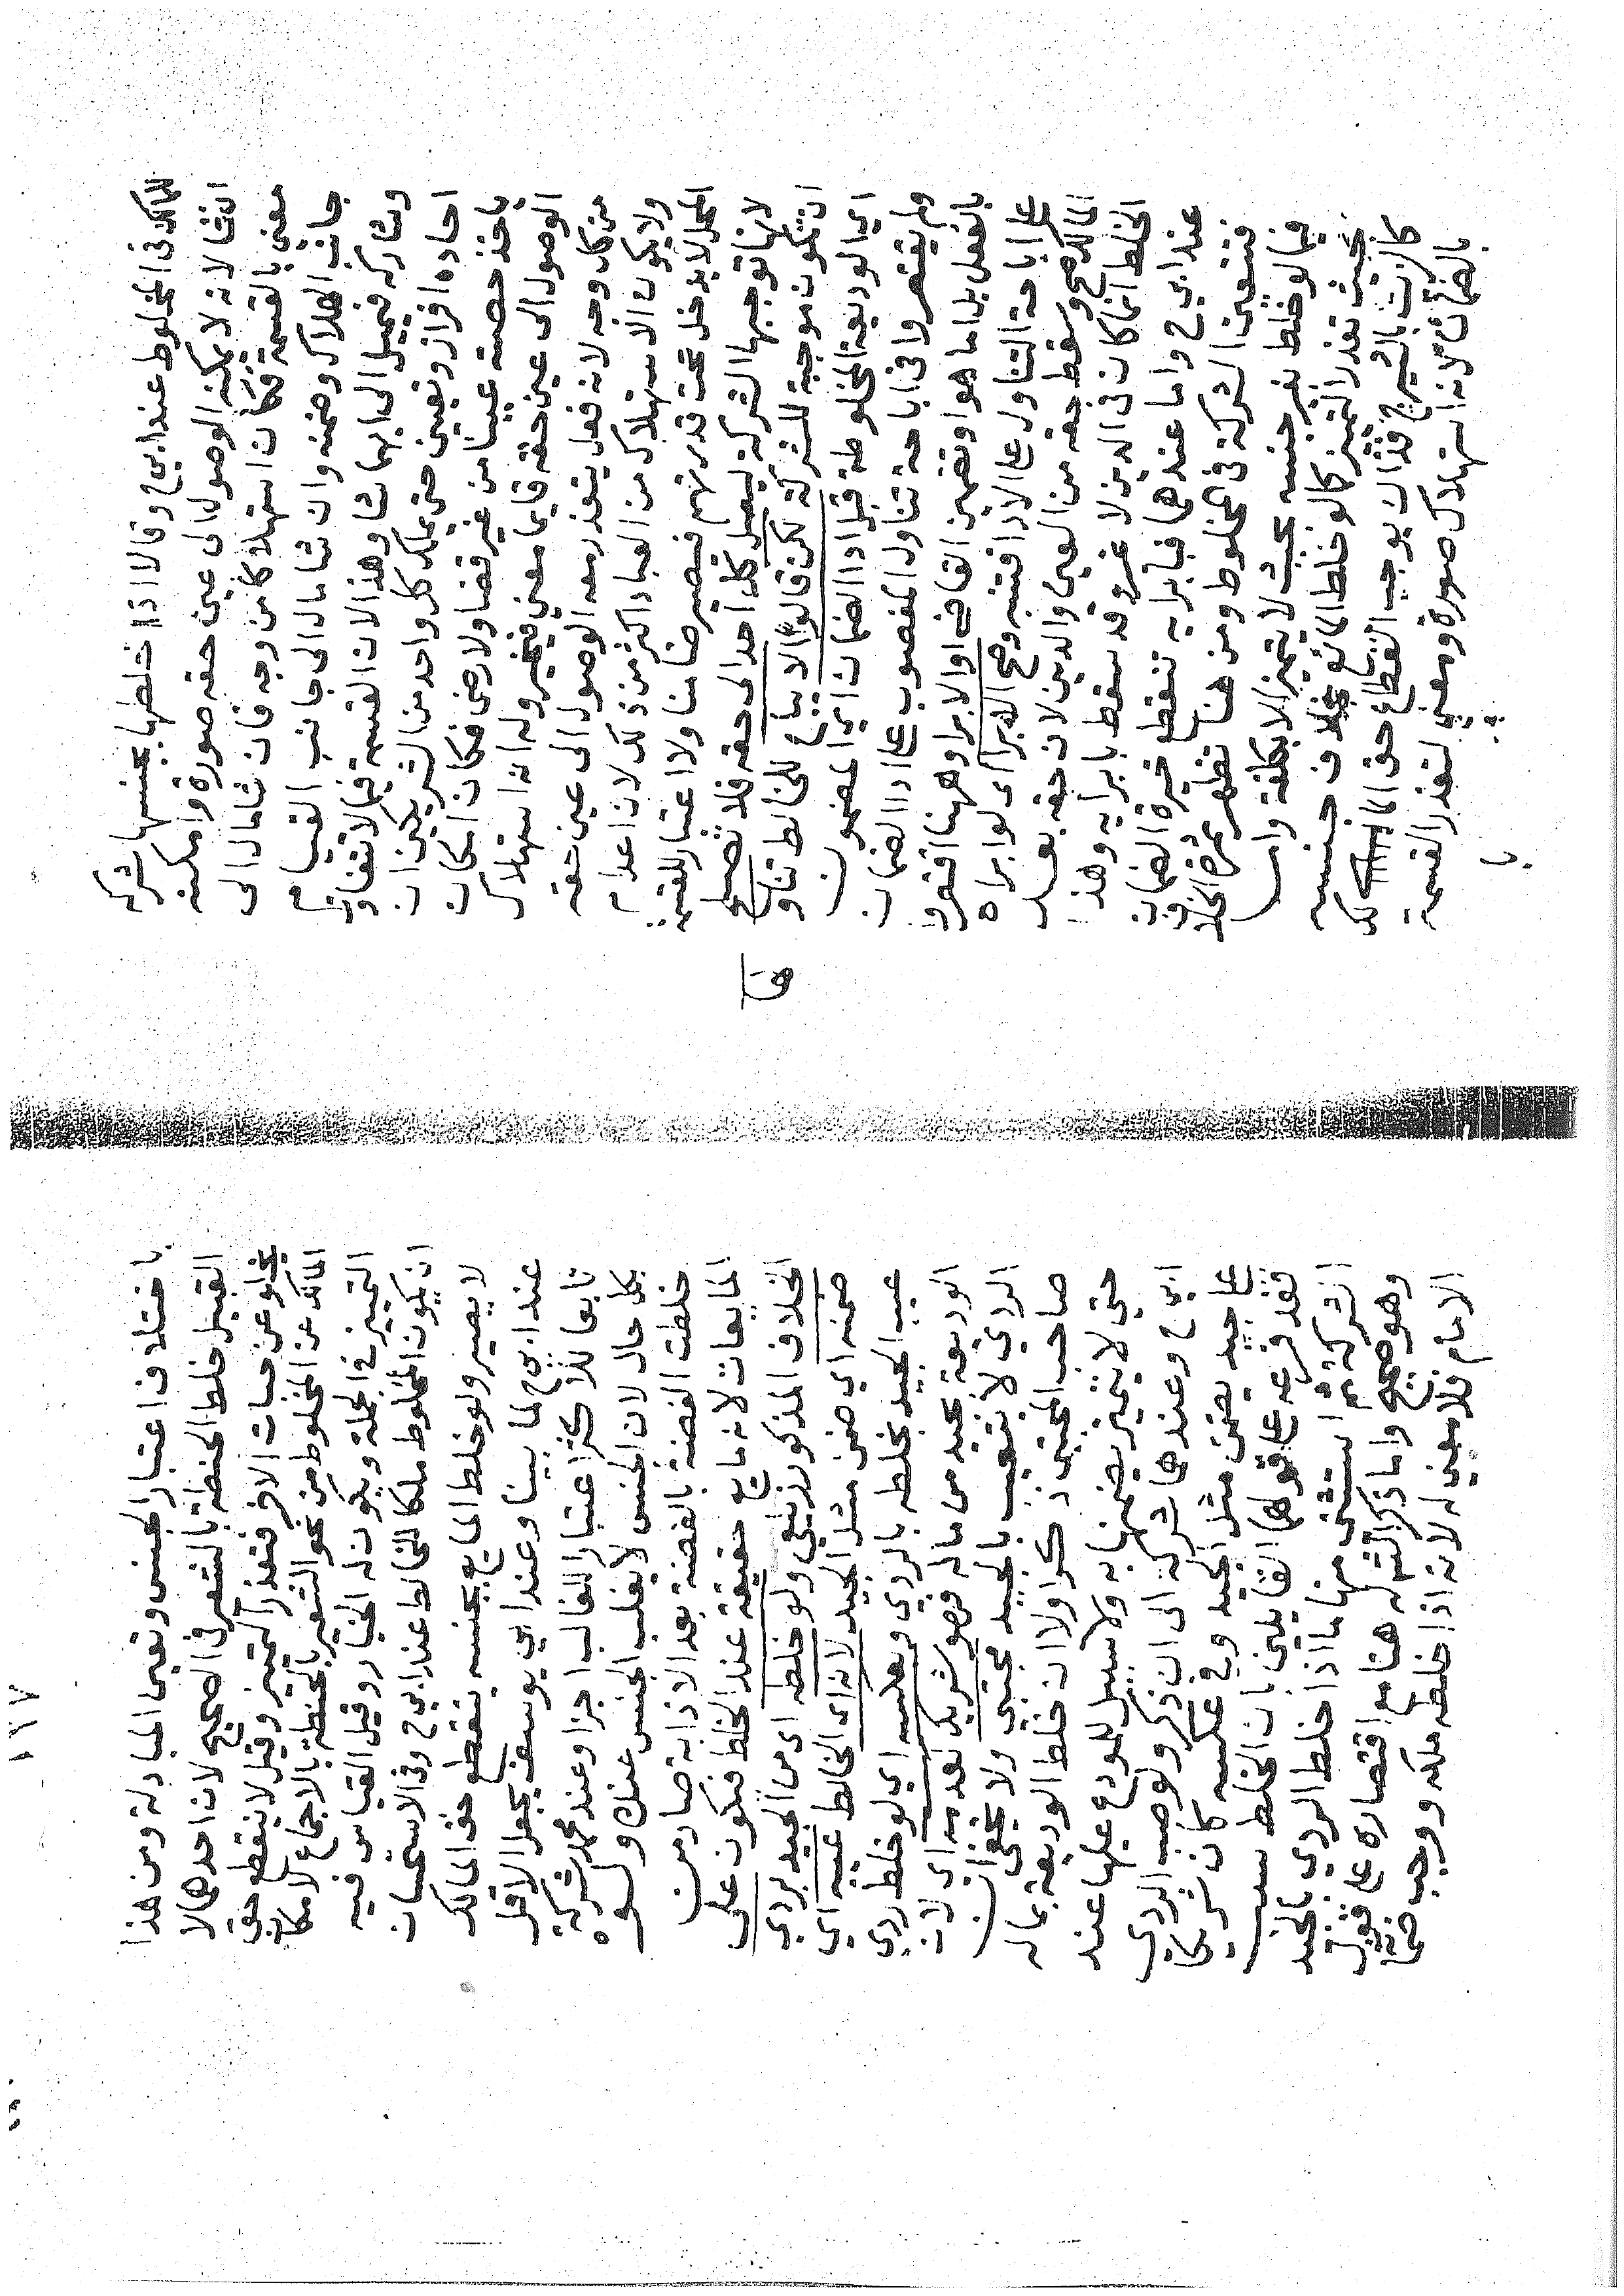 للمالك في المخلوط عند ابي ح وقالا اذا خلطها بجنسها شركه
ان شا لانه لا يمكنه الوصول الى عين حقه صورة وامكنه
معنى بالقسمة فكان استهلاكا من وجه فان شا مال الى
جانب الهلاك وضمنه وان شا مال الى جانب القيام
وشاركه فيميل الى ايهما شا وهذا لان القسمة فيما لا تتفاوت
احاده افراز وتعيين حتى ملك كل واحد من الشريكين ان
ياخذ حصته عينا من غير قضا ولا رضى فكان امكان
الوصول الى عين حقه قايما معنى فيخير وله انه استهلاك
من كل وجه لانه فعل يتعذر معه الوصول الى عين حقه
ولا يكون الاستهلاك من العباد اكثر من ذلك لان اعدام
المحل لا يدخل تحت قدرتهم فيصير ضامنا ولا اعتبار للقسمة
لانها توجبها الشركة ليصل كل احد الى حقه فلا تصلح
ان تكون موجبة للشركة لكن قالوا لا يباح للخالط تناول
اي الوديعة المخلوطة قبل ادا الضمان اي المضمون
ولم يقتصروا في اباحة تناول المغصوب على ادا الضمان
بالفعل بل اما هو او تضمين القاضي او الابرا وههنا اقتصروا
على اباحة التناول على الادا فتنبه وصح الابرا اي لو ابراه
المالك صح وسقط حقه من العين والدين لان حقه بعد
الخلط انما كان في الدين لا غير وقد سقط بابرايه وهذا
عند ابي ح واما عندهما فبابرايه تنقطع خيرة الضمان
فتتعين الشركة في المخلوط ومن هنا تظهر ثمرة الخلاف
فيما لو خلط بغير جنسه بحيث لا يتميز الا بكلفة وان
بحيث تعذر التميز كما لو خلط المائع بخلاف جنسه
كالزيت بالشيرج فذاك يوجب انقطاع حق المالك
بالضمان لانه استهلاك صورة ومعنى لتعذر القسمة
با
باختلاف اعتبار الجنس وتعين المبادلة ومن هذا
القبيل خلط الحنطة بالشعير في الصحيح لان احدهما لا
يخلو عن حبات الاخر فتعذر التميز وقيل لا ينقطع حق
المالك عن المخلوط من نحو الشعير بالحنطة بالاجماع لامكان
التمييز في الجملة ويكون له الخيار وقيل القياس فيه
ان يكون المخلوط ملكا للخالط عند ابي ح وفي الاستحسان
لا يصير ولو خلط المايع بجنسه ينقطع حق المالك
عند ابي ح لما بينا وعند ابي يوسف يجعل الاقل
تابعا للاكثر اعتبارا للغالب اجزا وعند محمد شركه
بكل حال لان الجنس لا يغلب الجنس عنده ولو
خلطت الفضة بالفضة بعد الاذابة صار من
المايعات لانه مايع حقيقة عند الخلط فيكون على
الخلاف المذكور زيلعي ولو خلطه اي من الجيد بردي
ضمنه اي ضمن مثل الجيد لانه اي الخالط عيبه اي
عيب الجيد بخلطه بالردي وبعكسه اي لو خلط ردي
الوديعة بجيد من ماله فهو شريك لعدمه اي لان
الردي لا يتعيب بالجيد مجتبى ولا يخفى ان
صاحب المجتبى ذكر اولا ان خلط الوديعة بماله
حتى لا يتميز يضمنها به ولا سبيل للمودع عليها عند
ابي ح وعندهما شركه الى ان ذكر ولو صب الردي
على جيد يضمن مثل الجيد وفي عكسه كان شريكا
فقد فرعه على قولهما القايلين بان الخلط سبب
الشركة ثم استثنى منها ما اذا خلط الردي بالجيد
وهو صحيح واما ذكر الشركة هنا مع اقتصاره على قول
الامام فلا معنى له لانه اذا خلطه ملكه ووجب ضما